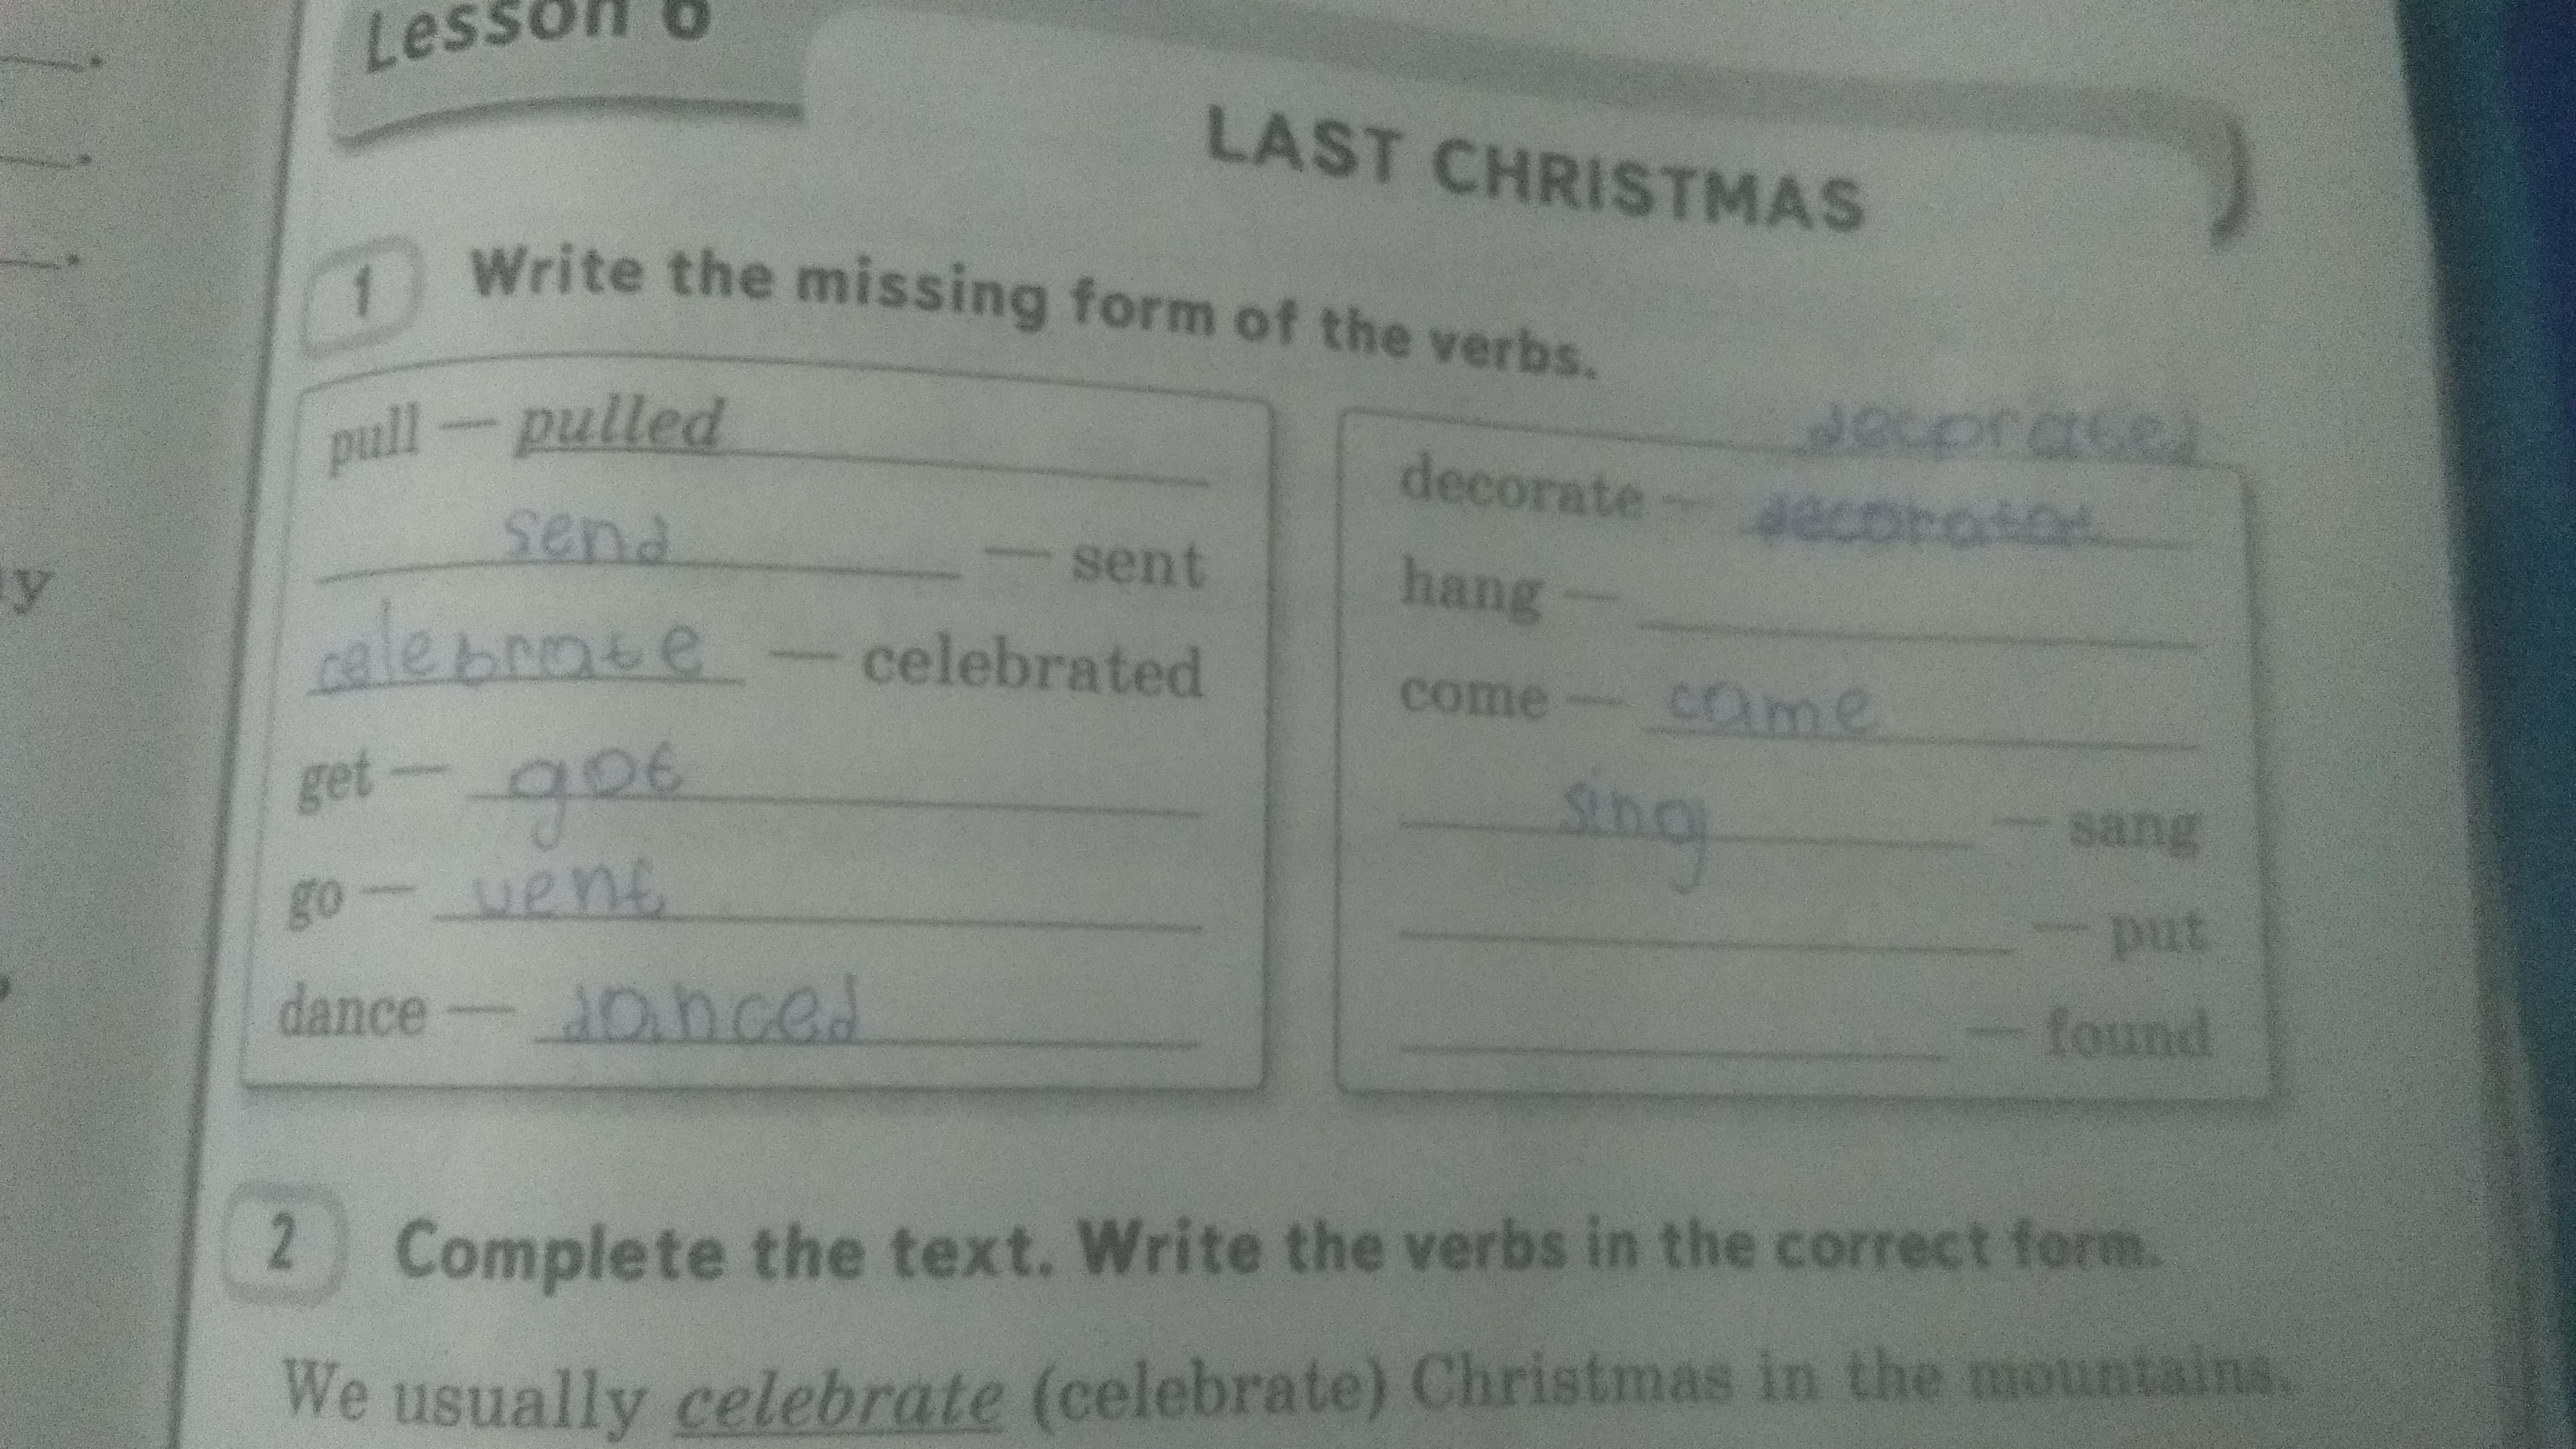 Lesson 6
LAST CHRISTMAS
1 Write the missing form of the verbs.
pull — pulled
send — sent
celebrate — celebrated
get — got
go — went
dance — danced
decorated
decorate —
hang —
come — came
sing — sang
— put
— found
2 Complete the text. Write the verbs in the correct form.
We usually celebrate (celebrate) Christmas in the mountains.
y